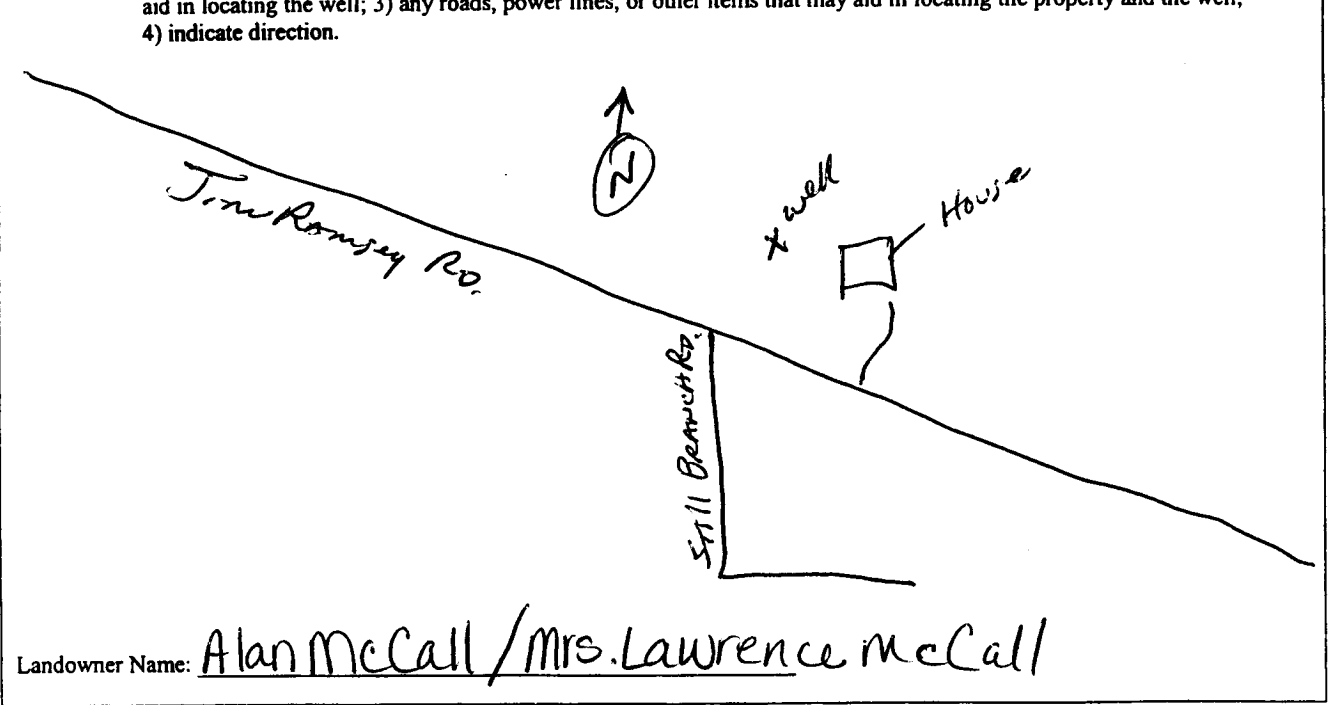 aid in locating the well; 3) any roads, power lines, or other items that may aid in locating the property and the well;
4) indicate direction.
N
x well
House
Jim Ramsey RD.
Still BRANCH RD.
Landowner Name: Alan McCall / Mrs. Lawrence McCall